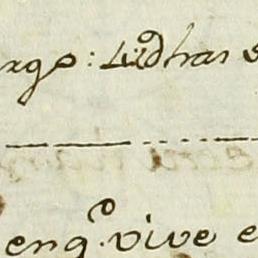 rgo: Lüdhas
engº. vive e